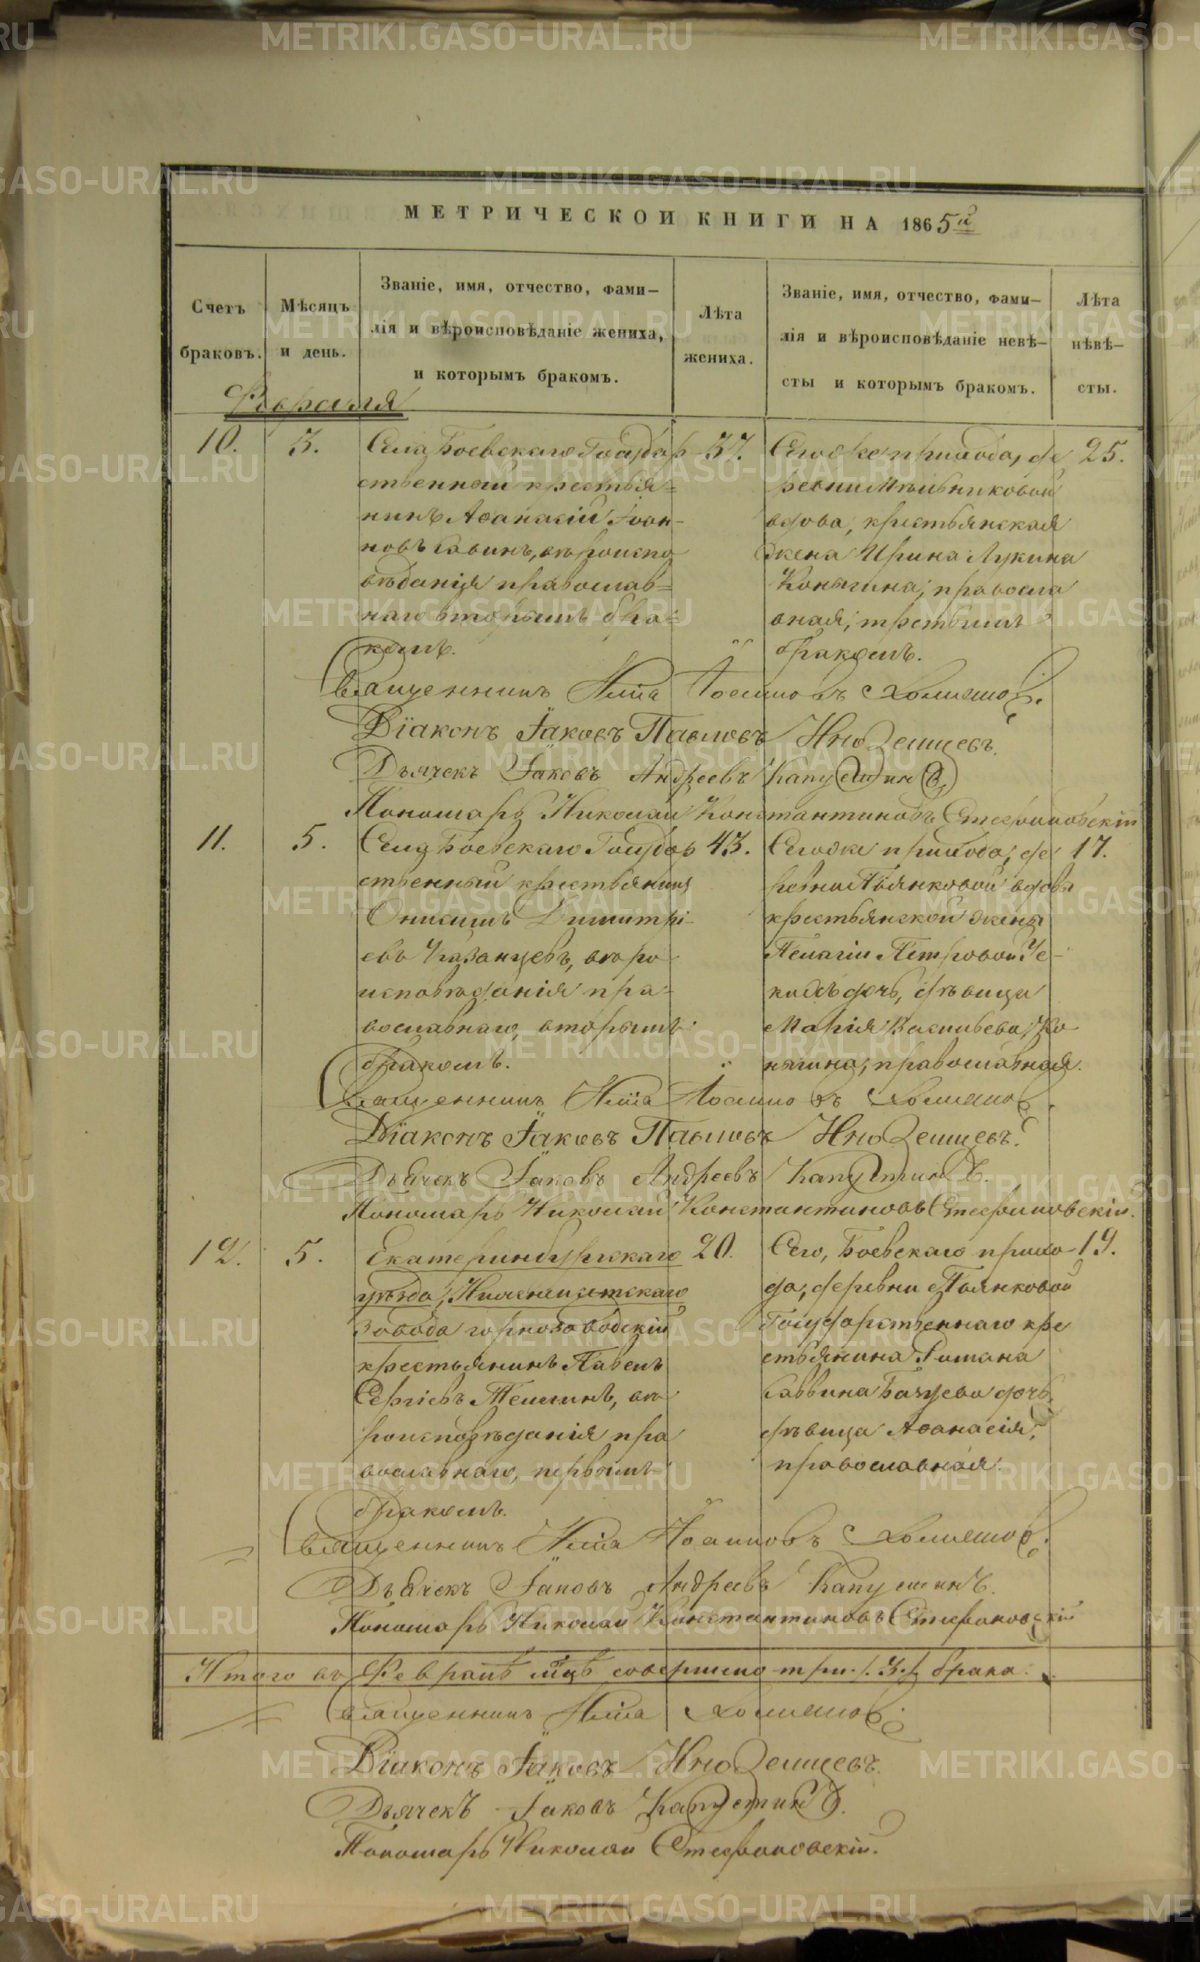 МЕТРИЧЕСКОЙ КНИГИ НА 1865й
Счетъ браковъ.
Мѣсяцъ и день.
Званіе, имя, отчество, фами-
лія и вѣроисповѣданіе жениха,
и которымъ бракомъ.
Лѣта жениха.
Званіе, имя, отчество, фами-
лія и вѣроисповѣданіе невѣ-
сты и которымъ бракомъ.
Лѣта нѣвѣ-
сты.
Февраля
10.
3.
Села Боевскаго Государ
ственный крестья=
нинъ Аѳанасій Іоан-
новъ Савинъ, вѣроиспо
вѣданія православ=
наго вторымъ бра=
комъ.
37.
Сего же прихода, де
ревни Мѣльниковой
вдова, крестьянская
жена Ирина Лукина
Конягина, правосла
вная, третьимъ
бракомъ.
25.
Священникъ Илія Іоанновъ
Діаконъ Іаковъ Павловъ Иноземцевъ.
Дьячекъ Іаковъ Андреевъ Капустинъ
Пономарь Николай Константиновъ Стефановскій
11.
5.
Села Боевскаго Государ
ственный крестьянинъ
Онисимъ Димитрі-
евъ Казанцевъ, вѣро
исповѣданія пра-
вославнаго, вторымъ
бракомъ.
43.
Сегоже прихода, де
ревни Пьянковой вдовы
крестьянской жены
Пелагіи Петровой
дочь, дѣвица
Марія Васильева Ко
нягина, православная.
17.
Священникъ Илія Іоанновъ
Діаконъ Іаковъ Павловъ Иноземцевъ.
Дьячекъ Іаковъ Андреевъ Капустинъ.
Пономарь Николай Константиновъ Стефановскій.
12.
5.
Екатеринбургскаго
уѣзда, Нижнеисетскаго
Завода горнозаводскій
крестьянинъ Павелъ
Сергіевъ вѣ
роисповѣданія пра
вославнаго, первымъ
бракомъ.
20.
Сего, Боевскаго прихо
да, деревни Пьянковой
Государственнаго кре
стьянина Романа
Саввина дочь,
дѣвица Аѳанасія,
православная.
19.
Священникъ Илія Іоанновъ
Дьячекъ Іаковъ Андреевъ Капустинъ.
Пономарь Николай Константиновъ Стефановскій
Итого въ Февралѣ мцѣ совершено три /3/ брака.
Священникъ Илія
Діаконъ Іаковъ Иноземцевъ.
Дьячекъ Іаковъ Капустинъ.
Пономарь Николай Стефановскій.
METRIKI.GASO-URAL.RU